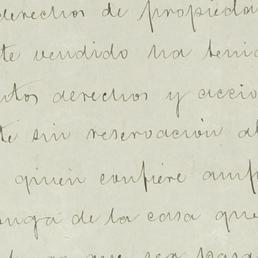 derechos de propieda
te vendido ha teni
ntos derechos y accio
te sin reservación al
quien confiere amp
onga de la casa que